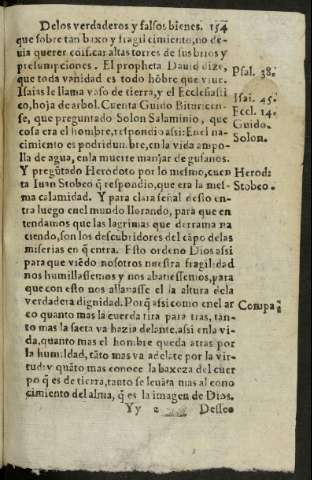 De los verdaderos y falsos bienes. 154
que sobre tan baxo y fragil cimiento, no de-
uia querer edificar altas torres de sus brios y
presumpciones. El propheta Dauid dize,
que toda vanidad es todo hõbre que viue.
Psal. 38.
Isaias le llama vaso de tierra, y el Ecclesiasti
Isai. 45.
co, hoja de arbol. Cuenta Guido Bituricen-
Eccl. 14.
se, que preguntado Solon Salaminio, que
Guido.
cosa era el hombre, respondio assi: En el na-
Solon.
cimiento es podridumbre, en la vida ampo-
lla de agua, en la muerte manjar de gusanos.
Y pregũtado Herodoto por lo mesmo, cuen
Herod.
ta Iuan Stobeo q̃ respondio, que era la mes-
Stobeo.
ma calamidad. Y para clara señal desto en-
tra luego en el mundo llorando, para que en
tendamos que las lagrimas que derrama na
ciendo, son los descubridores del cãpo de las
miserias en q̃ entra. Esto ordeno Dios assi
para que viẽdo nosotros nuestra fragilidad
nos humillassemos y nos abatiessemos, para
que con esto nos allanasse el la altura de la
verdadera dignidad. Porq̃ assi como en el ar
Compa
co quanto mas la cuerda tira para tras, tan-
to mas la saeta va hazia delante, assi en la vi-
da, quanto mas el hombre queda atras por
la humildad, tãto mas va adelãte por la vir-
tud: y quãto mas conoce la baxeza del cuer
po q̃ es de tierra, tanto se leuãta mas al cono
cimiento del alma, q̃ es la imagen de Dios.
Yy 2 Desseo